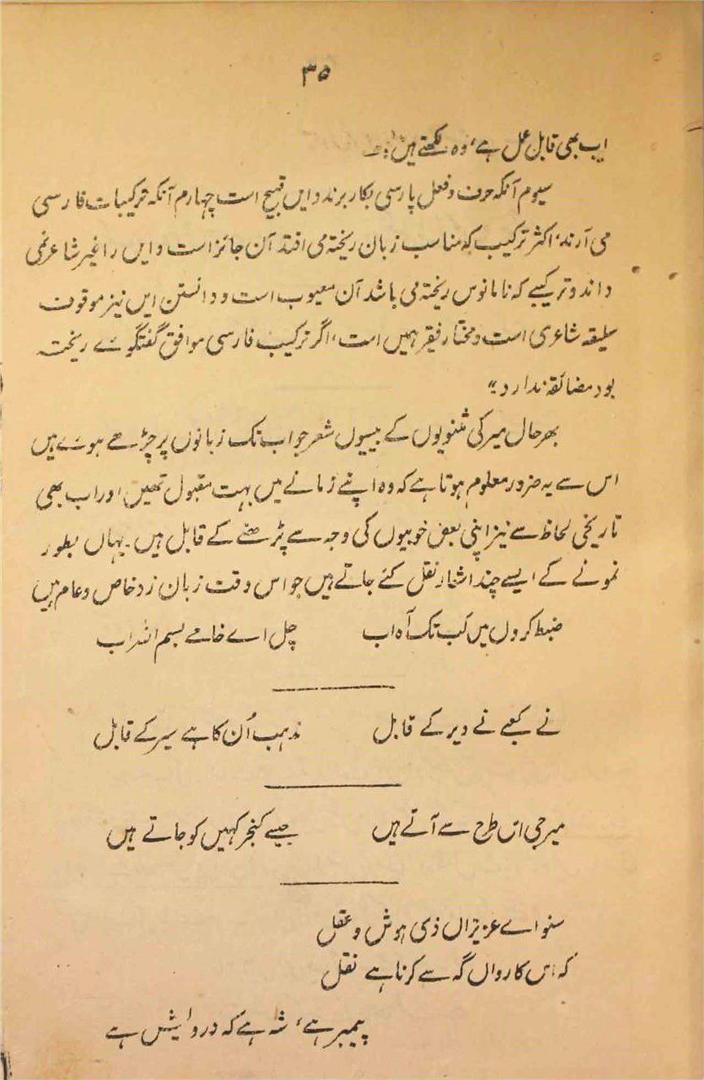 ۳۵
اب بھی قابل عمل ہے، وہ لکھتے ہیں:۔
سیوم آنکہ حرف و فعل پارسی بکار برند و ایں قبیح است چہارم آنکہ ترکیبات فارسی
می آرند، اکثر ترکیب کہ مناسب زبان ریختہ می افتد آن جائز است و ایں را غیر شاعر نمی
داند و ترکیبے کہ نامانوس ریختہ می باشد آن معیوب است و دانستن ایں نیز موقوف
سلیقہ شاعری است و مختار فقیر ہمیں است، اگر ترکیب فارسی موافق گفتگوے ریختہ
بود مضائقہ ندارد"
بہرحال میر کی مثنویوں کے بیسیوں شعر جو اب تک زبانوں پر چڑھے ہوے ہیں
اس سے یہ ضرور معلوم ہوتا ہے کہ وہ اپنے زمانے میں بہت مقبول تھیں اور اب بھی
تاریخی لحاظ سے نیز اپنی بعض خوبیوں کی وجہ سے پڑھنے کے قابل ہیں۔ یہاں بطور
نمونے کے ایسے چند اشعار نقل کئے جاتے ہیں جو اس وقت زبان زد خاص و عام ہیں
ضبط کروں میں کب تک آہ اب چل اے خامے بسم اللہ اب
نے کعبے نے دیر کے قابل مذہب اُن کا ہے سیر کے قابل
میر جی اس طرح سے آتے ہیں جیسے کنجر کہیں کو جاتے ہیں
سنو اے عزیزاں ذی ہوش و عقل
کہ اس کارواں گہ سے کرنا ہے نقل
پیمبر ہے، شہ ہے کہ درویش ہے